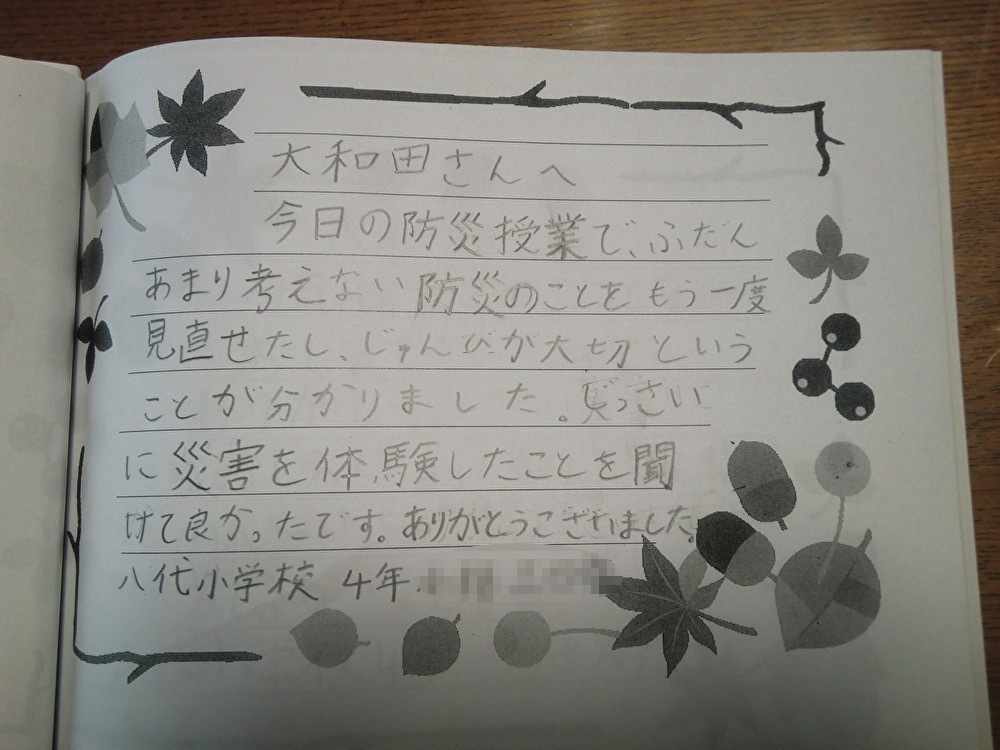 大和田さんへ
今日の防災授業で、ふだん
あまり考えない防災のことをもう一度
見直せたし、じゅんびが大切という
ことが分かりました。実っさい
に災害を体験したことを聞
けて良かったです。ありがとうございました。
八代小学校 4年